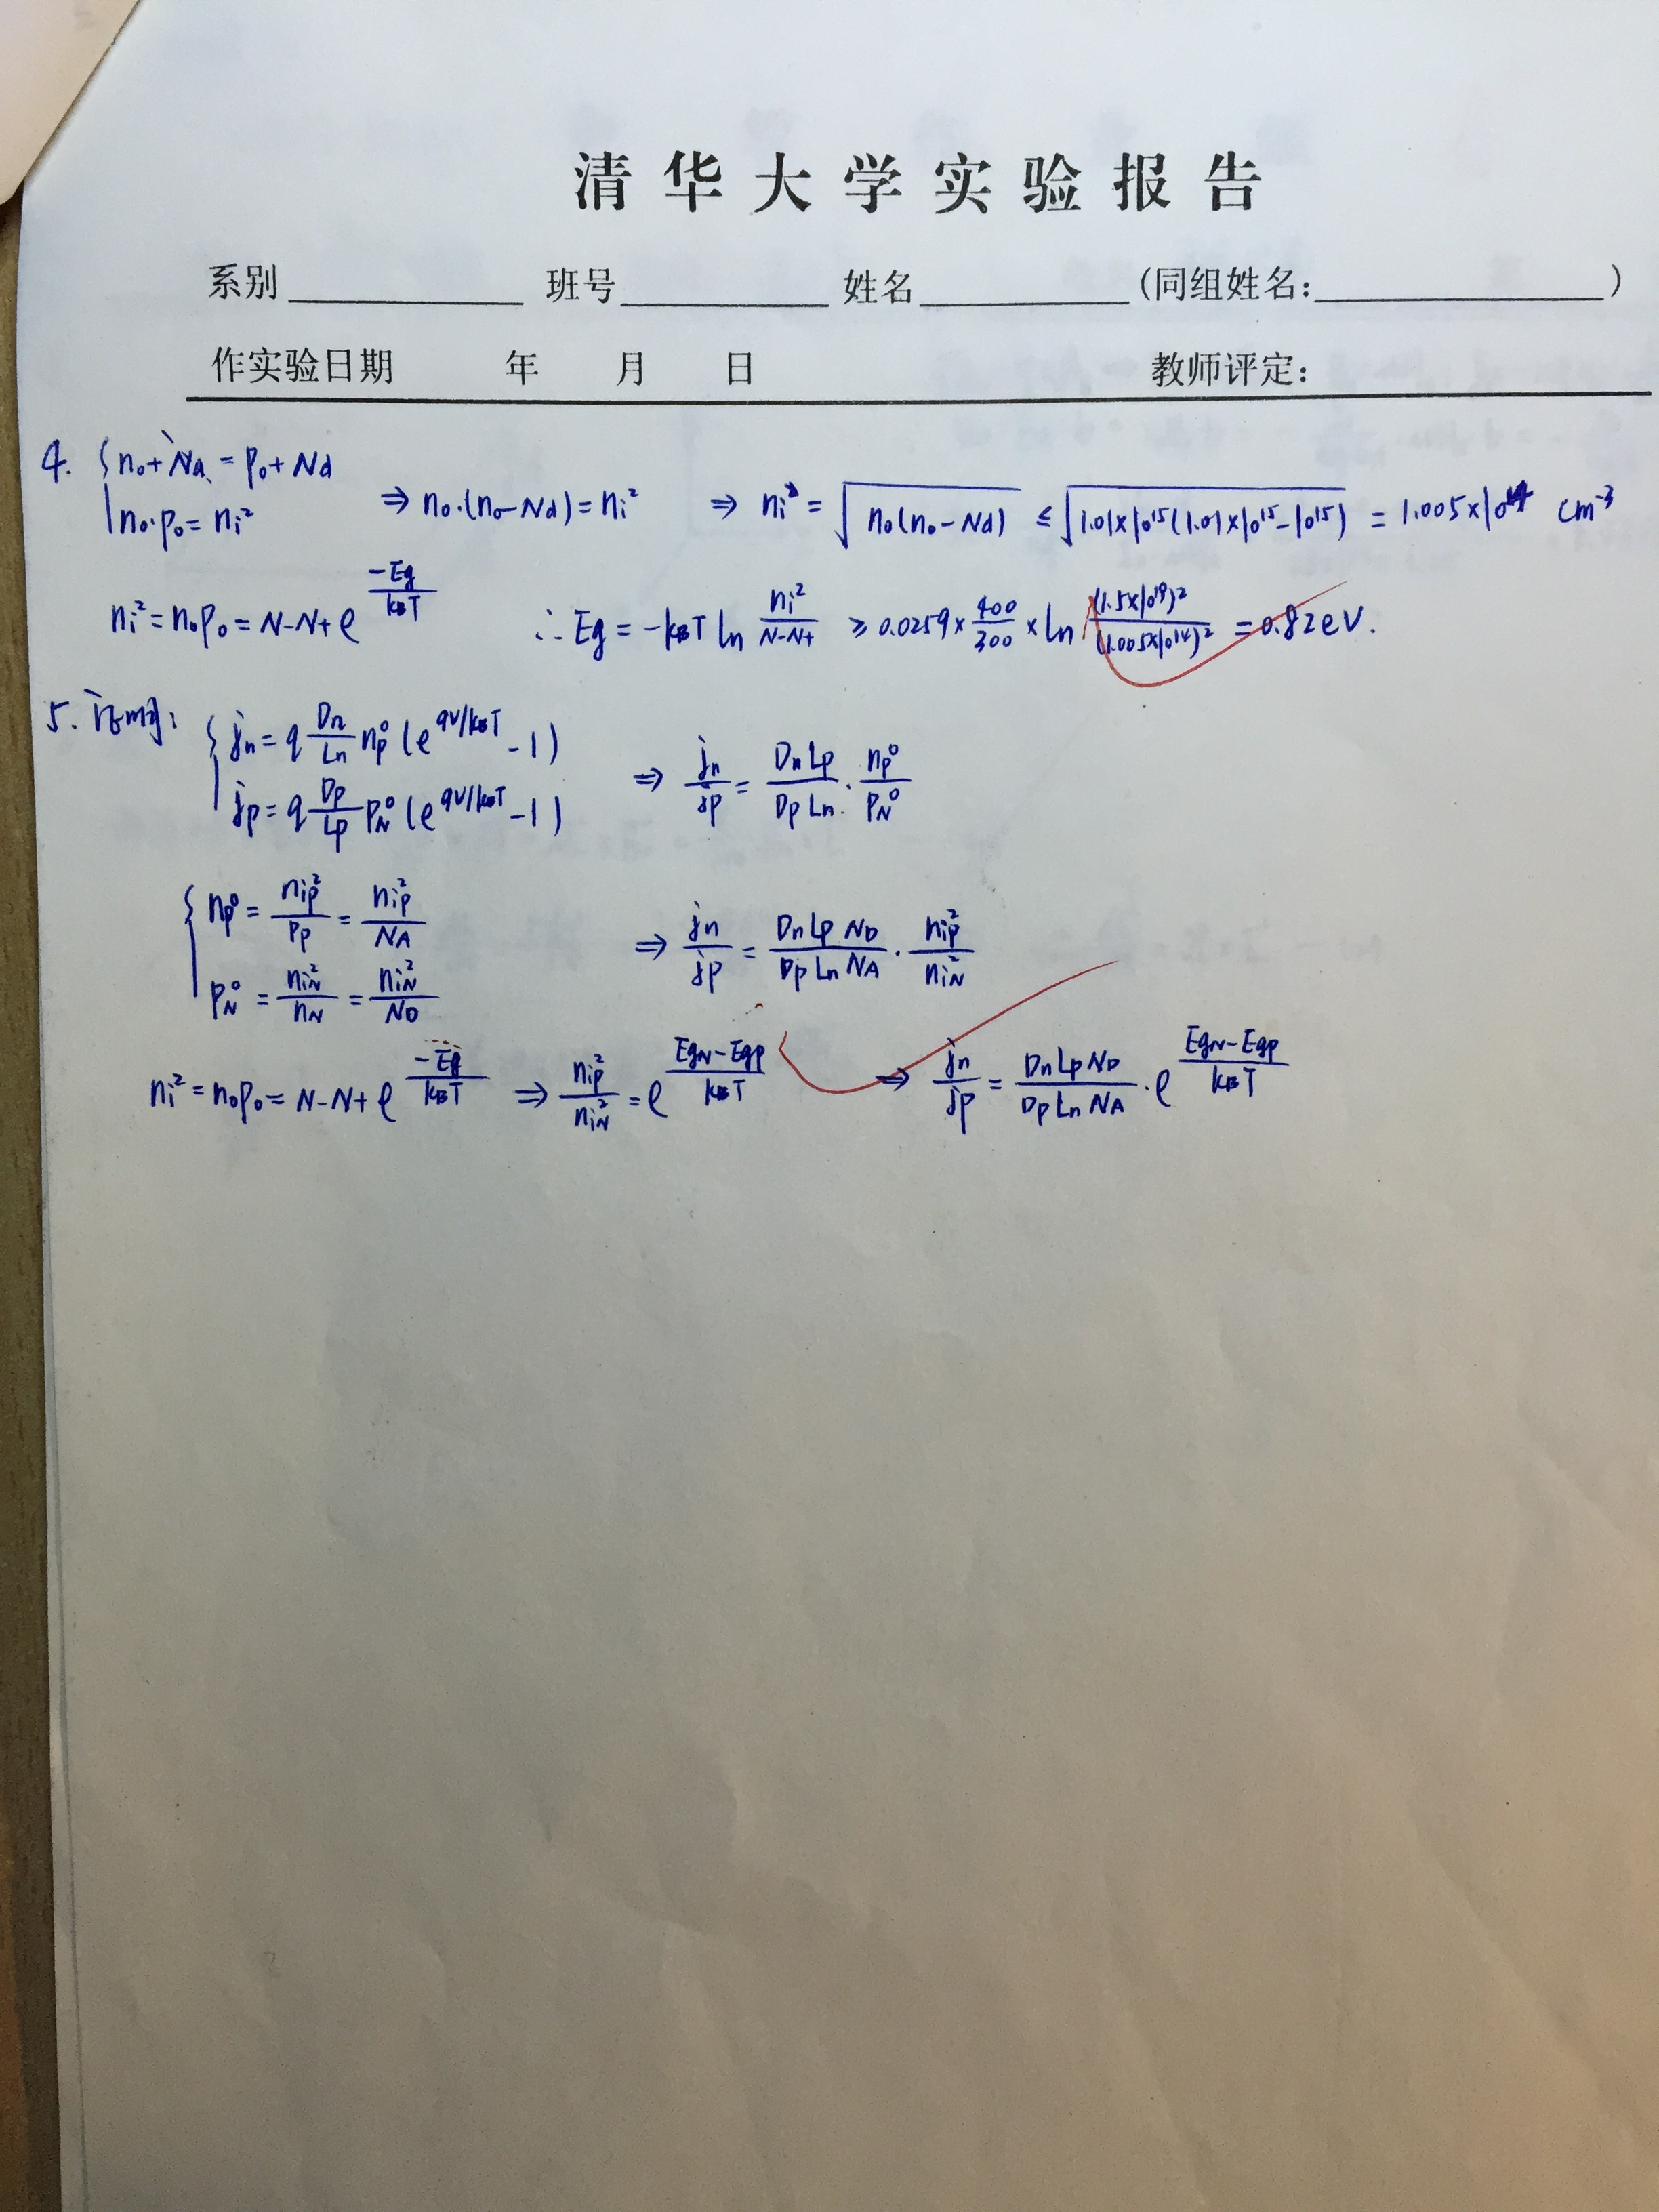 清华大学实验报告
系别 班号 姓名 (同组姓名: )
作实验日期 年 月 日 教师评定:
4. { n₀+Na = p₀+Nd
n₀·p₀ = nᵢ² ⇒ n₀·(n₀-Nd) = nᵢ² ⇒ nᵢ = √(n₀(n₀-Nd)) ≤ √(1.01×10¹⁵(1.01×10¹⁵-10¹⁵)) = 1.005×10¹⁴ cm⁻³
nᵢ² = n₀p₀ = N-N+ e^(-Eg/kBT) ∴ Eg = -kBT ln (nᵢ²/N-N+) ≥ 0.0259×400/300×ln (1.5×10¹⁹)²/(1.005×10¹⁴)² = 0.82eV.
5. 证明: { jn = q Dn/Ln np⁰ (e^(qV/kBT) -1)
jp = q Dp/Lp pN⁰ (e^(qV/kBT) -1) ⇒ jn/jp = DnLp/DpLn · np⁰/pN⁰
{ np⁰ = nip²/Pp = nip²/NA
pN⁰ = niN²/nN = niN²/ND ⇒ jn/jp = DnLpND/DpLnNA · nip²/niN²
nᵢ² = n₀p₀ = N-N+ e^(-Eg/kBT) ⇒ nip²/niN² = e^((EgN-Egp)/kBT) ⇒ jn/jp = DnLpND/DpLnNA · e^((EgN-Egp)/kBT)